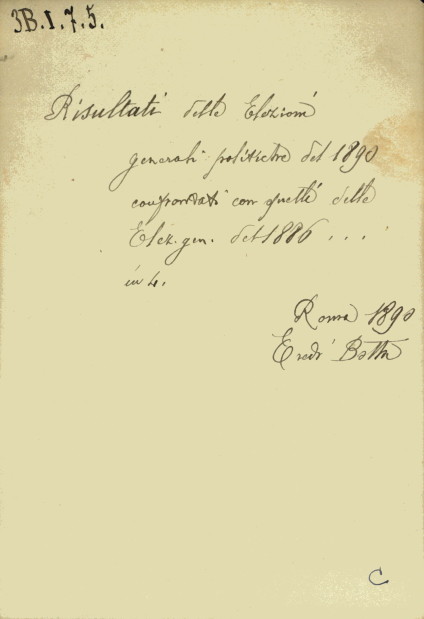 3B.1.7.5.
Risultati delle Elezioni
generali politiche del 1890
confrontati con quelle delle
Elez. gen. del 1886 ....
in 4.
Roma 1890
Eredi Botta
C